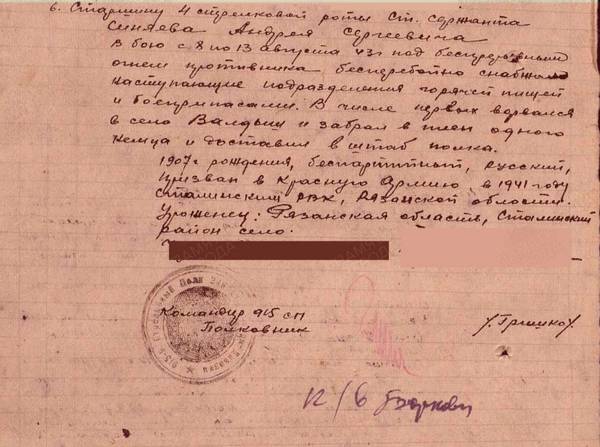 6. Старшину 4 стрелковой роты Ст. Сержанта
Синяева Андрея Сергеевича
В бою с 8 по 13 августа 43г под беспрерывным
огнем противника бесперебойно снабжал
наступающие подразделения горячей пищей
и боеприпасами. В числе первых ворвался
в село и забрал в плен одного
немца и доставил в штаб полка.
1907г рождения, беспартийный, Русский,
призван в Красную Армию в 1941 году
Сталинским РВК, Рязанской области.
Уроженец: Рязанская область, Сталинский
район село.
Командир 915 сп
Полковник /Гришко/
К/б